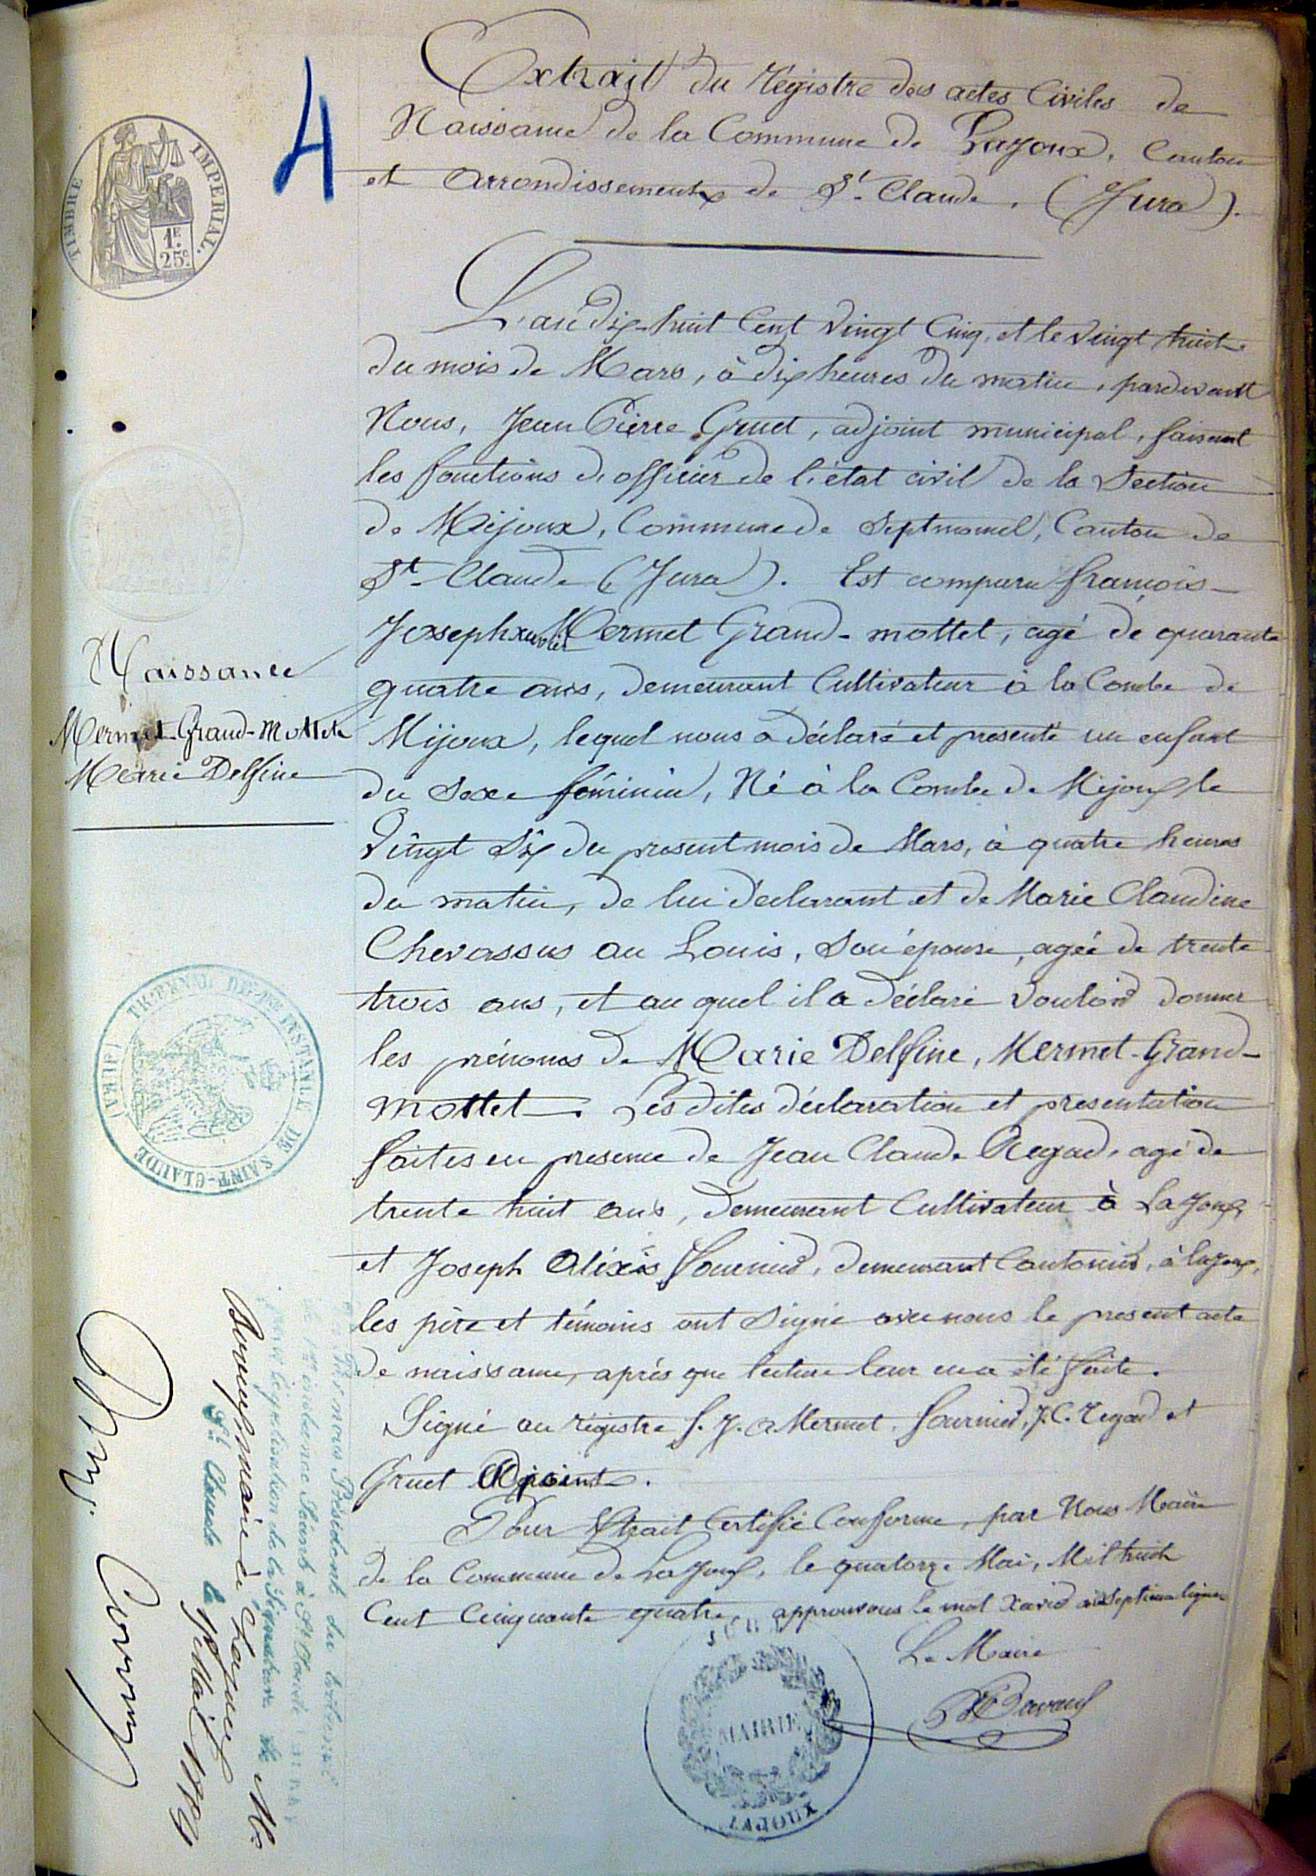 4
TIMBRE IMPERIAL.
1F.
25c.
Extrait du Régistre des actes Civiles de
Naissance de la Commune de Lajoux, Canton
et Arrondissement de St. Claude, (Jura).
L'an dix-huit Cent vingt Cinq, et le vingt huit
du mois de Mars, à dix heures du matin, pardevant
Nous, Jean Pierre Gruet, adjoint municipal, faisant
les fonctions d'officier de l'état civil de la Section
de Mijoux, Commune de Septmoncel, Canton de
St. Claude (Jura). Est comparu françois-
Joseph xavier Mermet Grand-mottet, agé de quarante
quatre ans, demeurant Cultivateur à la Combe de
Mijoux, lequel nous a déclaré et présenté un enfant
du Sexe féminin, Né à la Combe de Mijoux le
Vingt Six du present mois de Mars, à quatre heures
du matin, de lui declarant et de Marie Claudine
Chevassus au Louis, Son épouse, agée de trente
trois ans, et au quel il a déclaré vouloir donner
les prénoms de Marie Delfine, Mermet-Grand-
mottet. Les dites déclaration et presentation
faites en presence de Jean Claude Regad, agé de
trente huit ans, demeurant Cultivateur à Lajoux,
et Joseph Alixis fournier, demeurant Cantonier, à lajoux,
les père et témoins ont Signé avec nous le present acte
de naissance, après que lecture leur en a été faite.
Signé au régistre f. J. Mermet, fournier, J. C. Regad et
Gruet Adjoint.
Pour Extrait Certifié Conforme, par Nous Maire
de la Commune de Lajoux, le quatorze Mai, Mil huit
Cent Cinquante quatre, approuvons le mot Xavier Septième ligne
Le Maire
Naissance
Mermet-Grand-Mottet
Marie Delfine
TRIBUNAL DE 1RE INSTANCE DE SAINT-CLAUDE (JURA)
Vu par nous Président du tribunal
de 1re instance Séant à St Claude
pour légalisation de la Signature de Mr
maire à Lajoux
St Claude le Mai
JURA
MAIRIE
LAJOUX